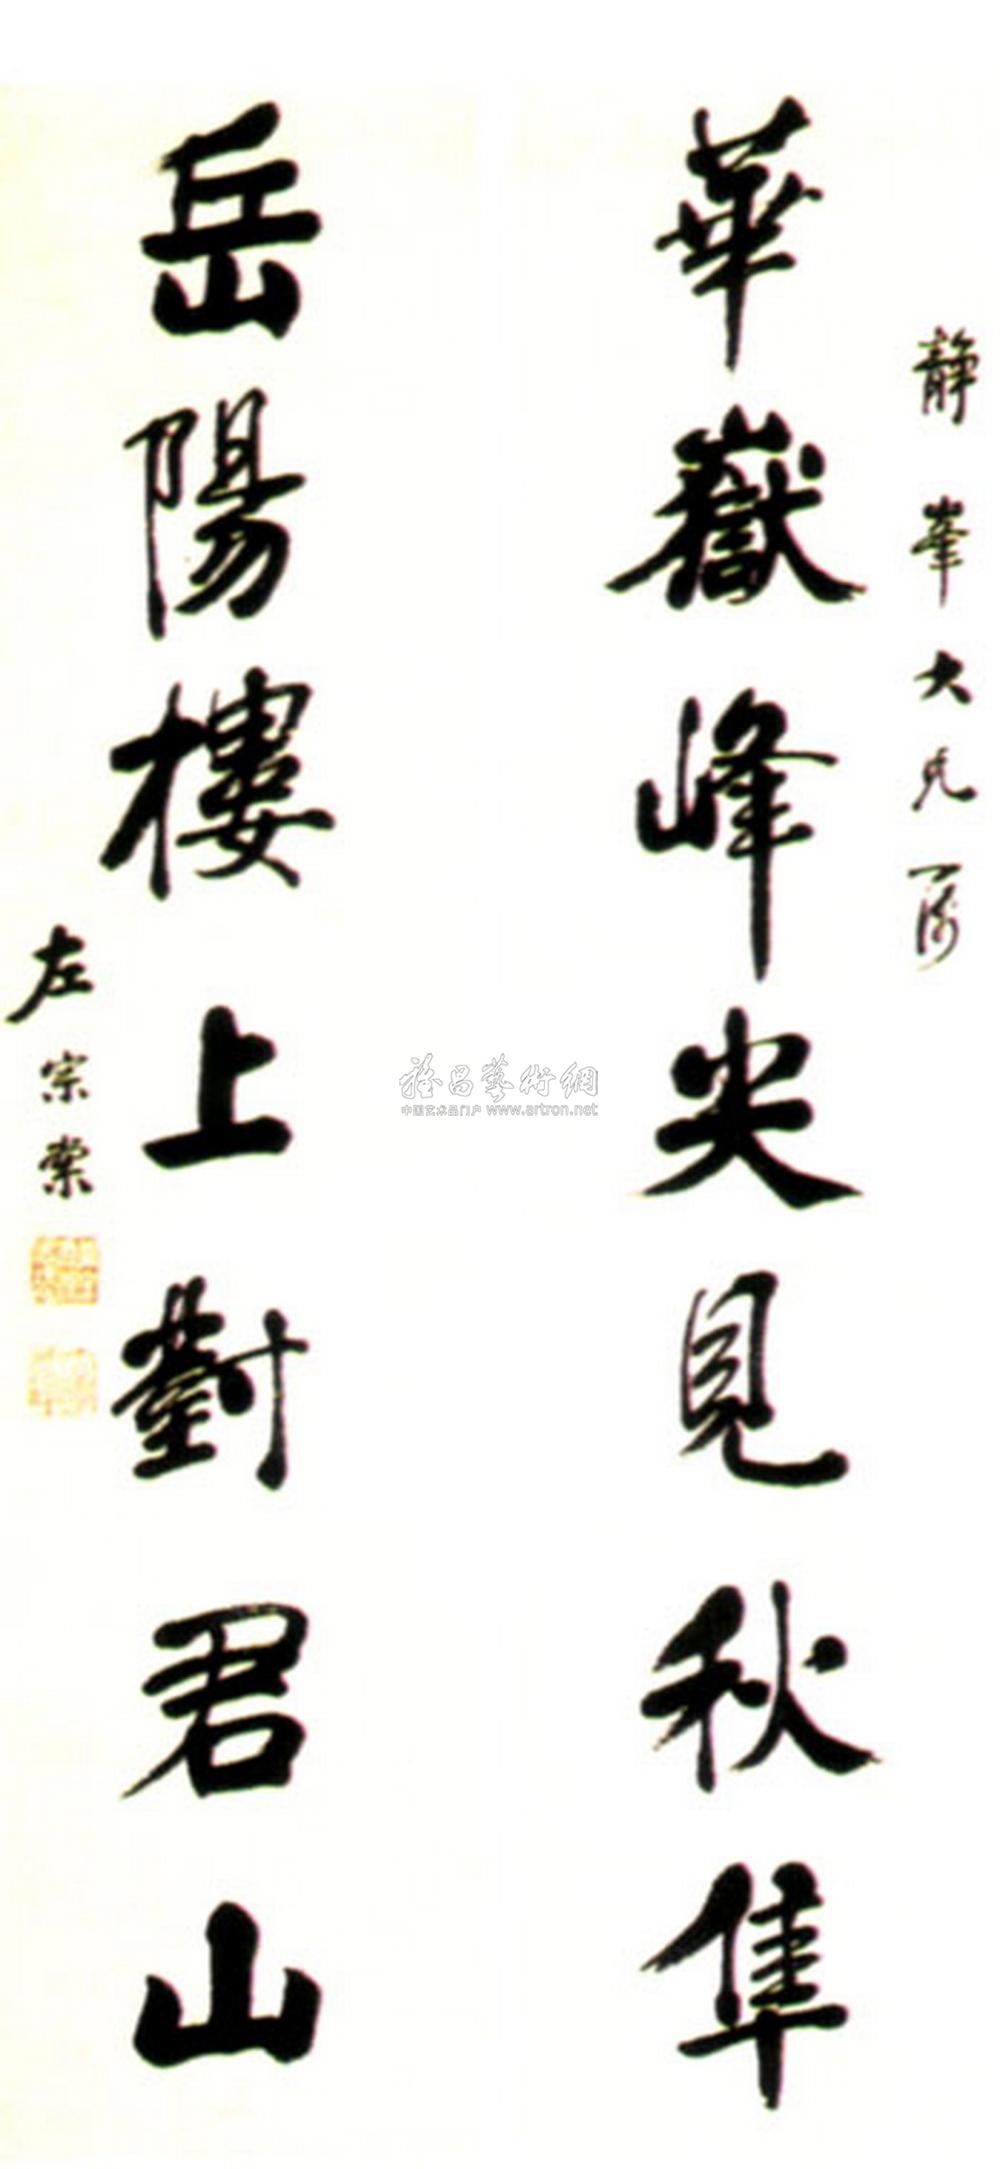 靜峯大兄屬
華嶽峰尖見秋隼
岳陽樓上對君山
左宗棠
雅昌藝術網
中国艺术品门户 www.artron.net